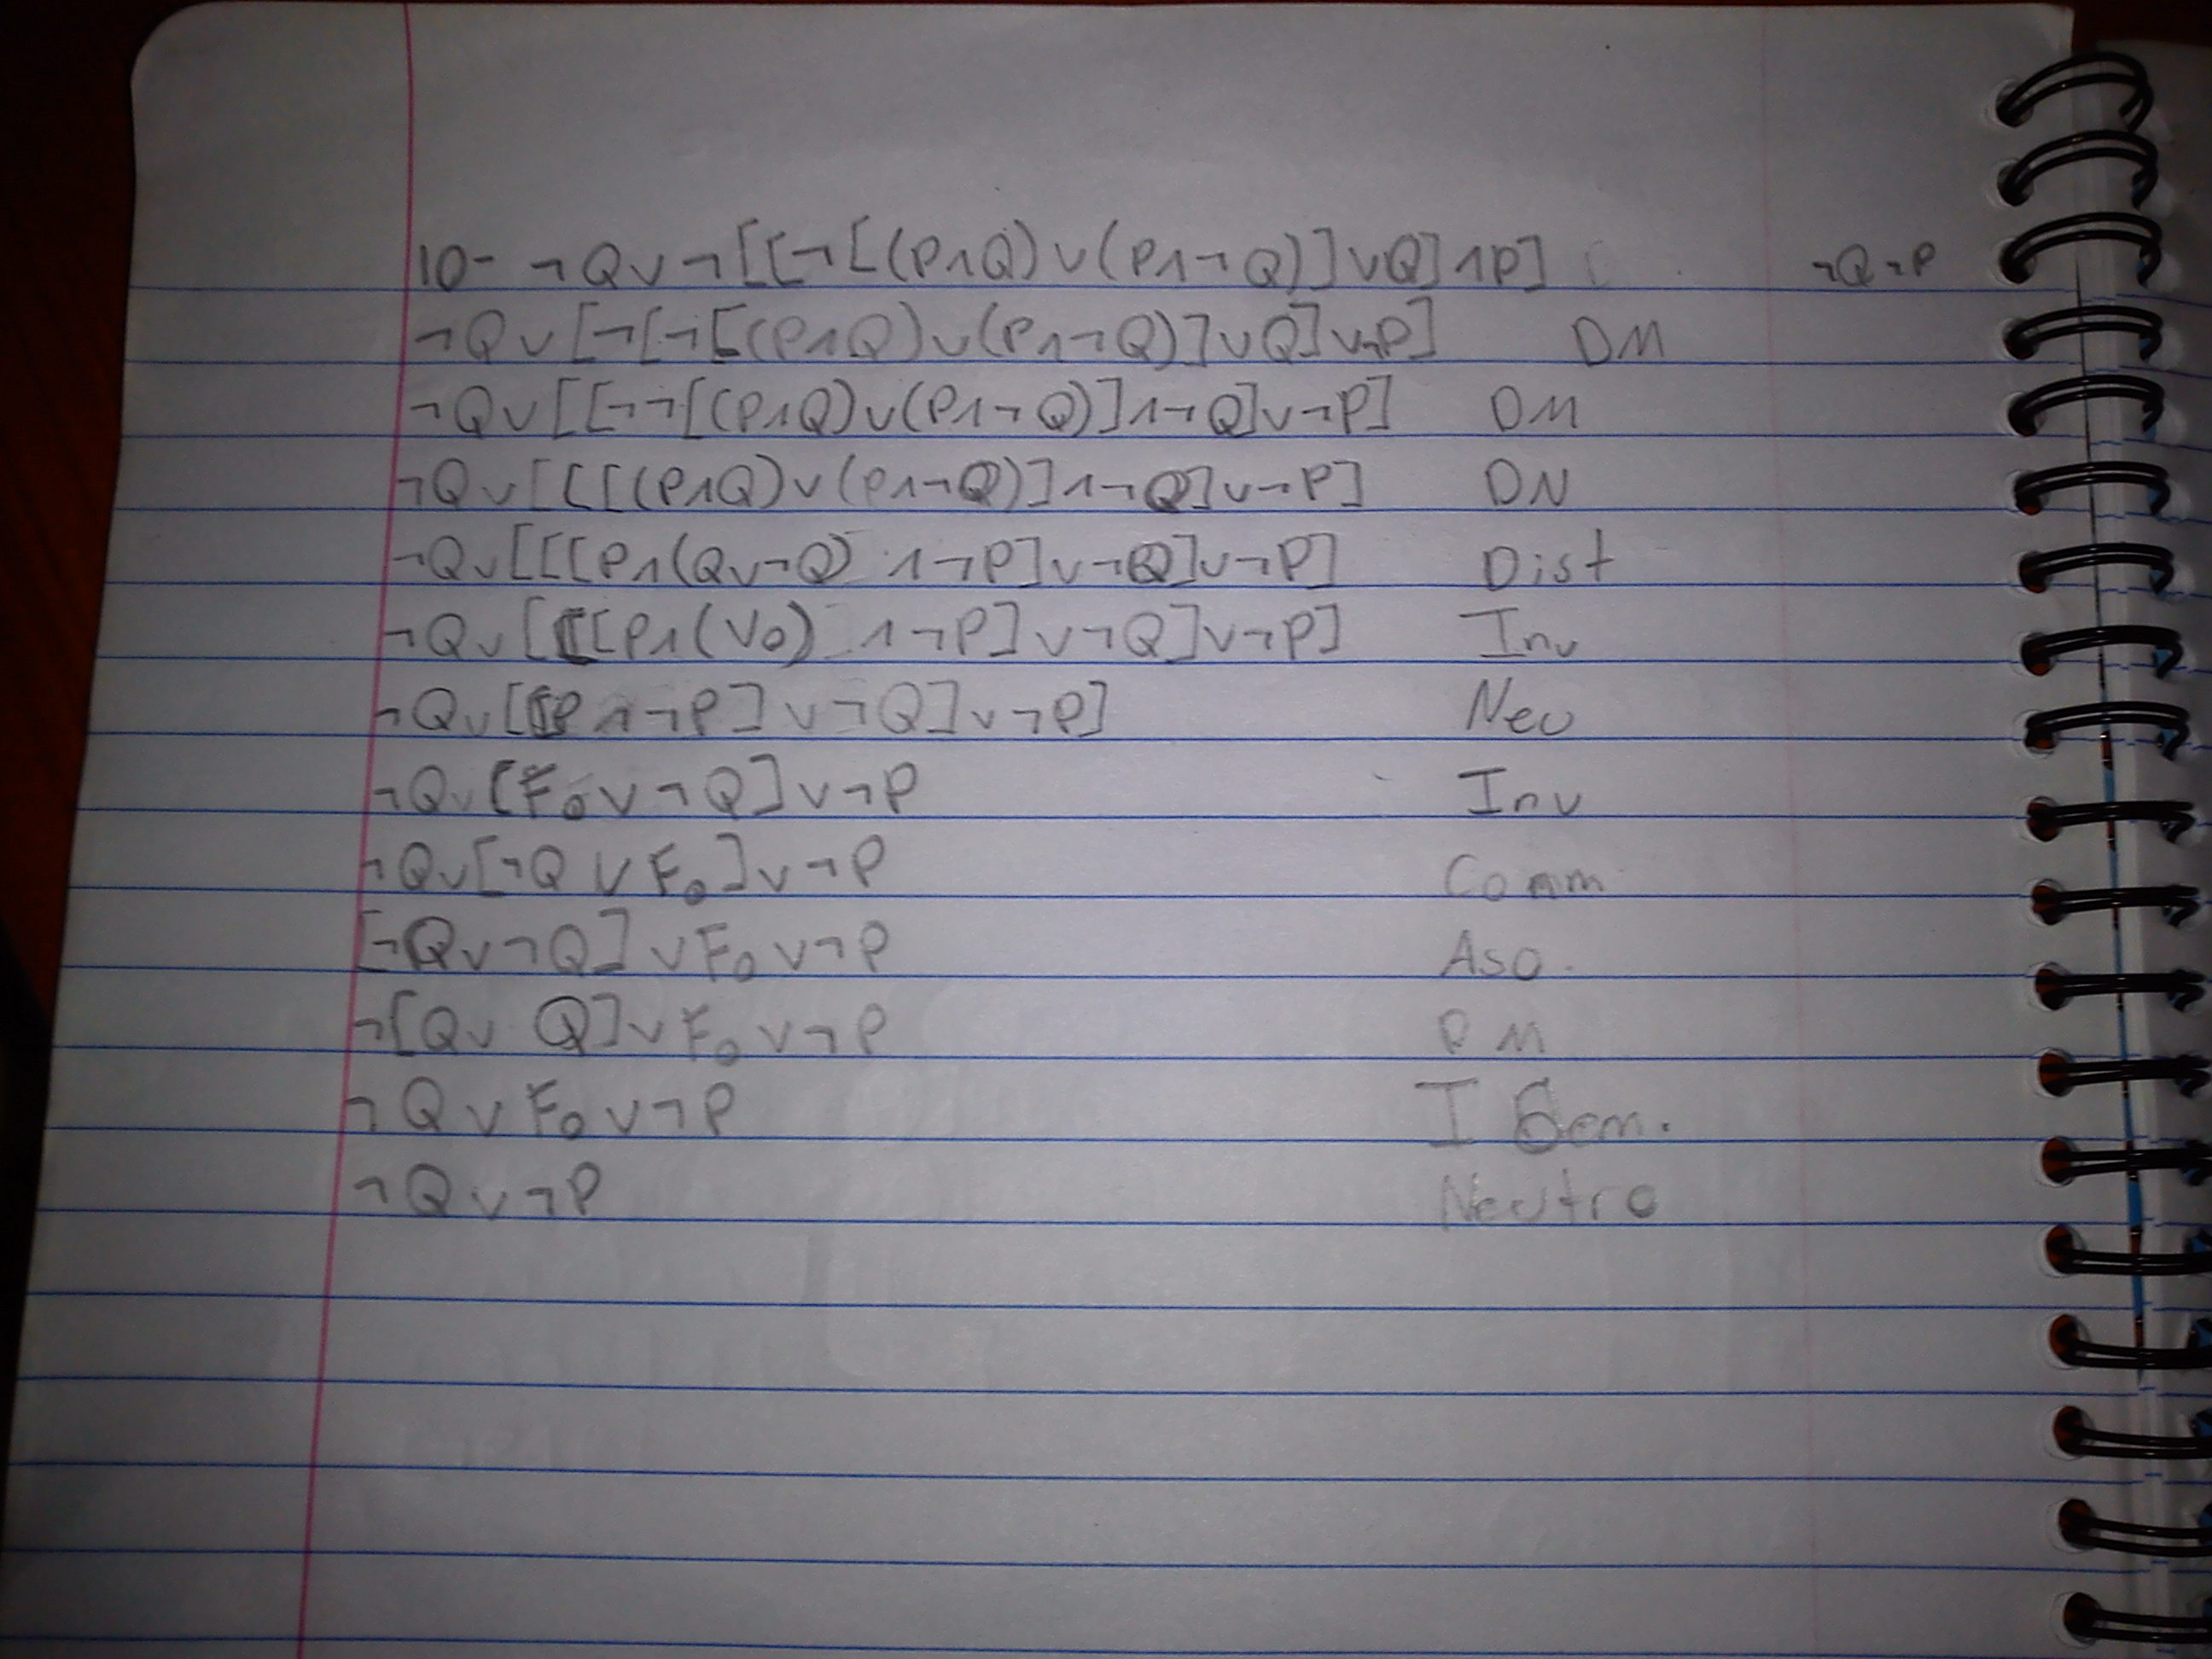 10- ¬Q∨¬[[¬[(P∧Q)∨(P∧¬Q)]∨Q]∧P] ¬Q¬P
¬Q∨[¬[¬[(P∧Q)∨(P∧¬Q)]∨Q]∨¬P] DM
¬Q∨[[¬¬[(P∧Q)∨(P∧¬Q)]∧¬Q]∨¬P] DM
¬Q∨[[[(P∧Q)∨(P∧¬Q)]∧¬Q]∨¬P] DN
¬Q∨[[[P∧(Q∨¬Q) ∧¬P]∨¬Q]∨¬P] Dist
¬Q∨[[[P∧(V₀) ∧¬P]∨¬Q]∨¬P] Inv
¬Q∨[[P∧¬P]∨¬Q]∨¬P] Neu
¬Q∨[F₀∨¬Q]∨¬P Inv
¬Q∨[¬Q∨F₀]∨¬P Comm
[¬Q∨¬Q]∨F₀∨¬P Aso.
¬[Q∨ Q]∨F₀∨¬P DM
¬Q∨F₀∨¬P
¬Q∨¬P Neutro